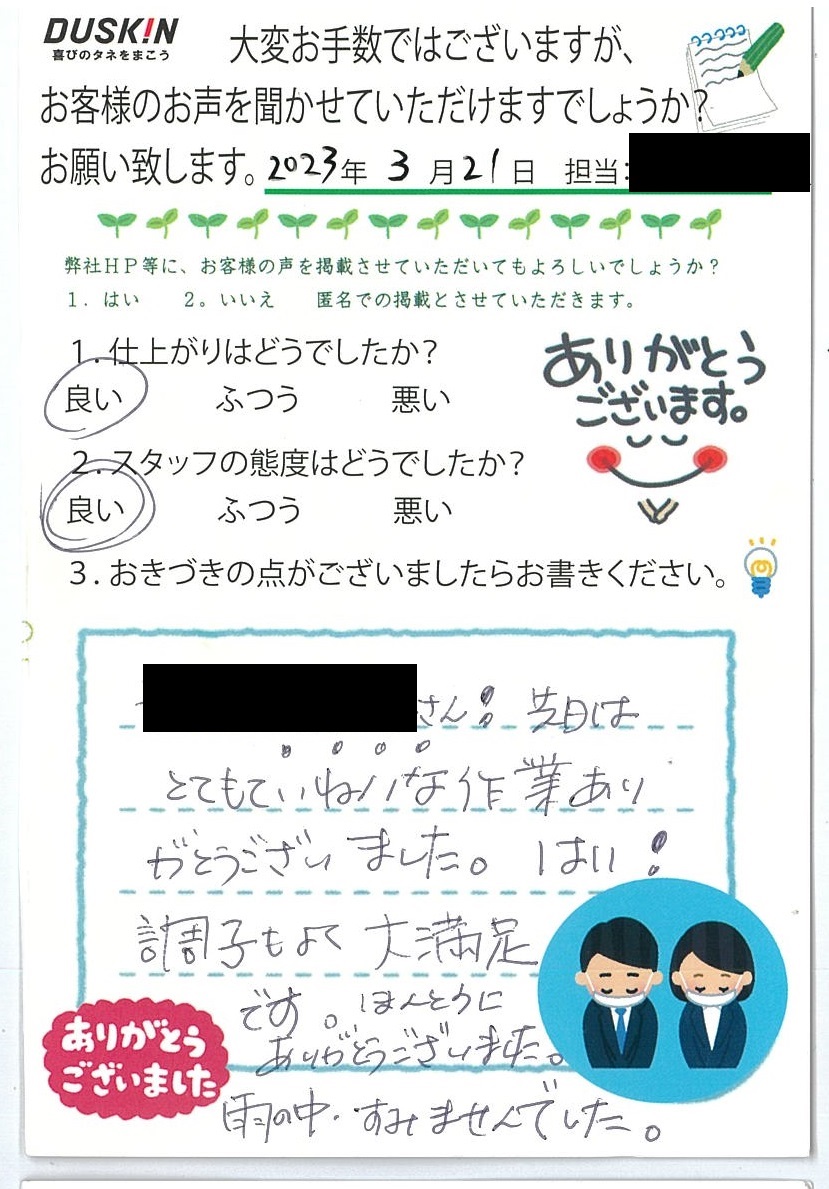 DUSKIN
喜びのタネをまこう
大変お手数ではございますが、
お客様のお声を聞かせていただけますでしょうか?
お願い致します。2023年 3月21日 担当:
弊社HP等に、お客様の声を掲載させていただいてもよろしいでしょうか?
1. はい 2。いいえ 匿名での掲載とさせていただきます。
1. 仕上がりはどうでしたか?
良い ふつう 悪い
ありがとう
ございます。
2. スタッフの態度はどうでしたか?
良い ふつう 悪い
3. おきづきの点がございましたらお書きください。
さん! 先日は
とてもていねいな作業あり
がとうございました。 はい!
調子もよく 大満足
です。ほんとうに
ありがとうございました。
雨の中、すみませんでした。
ありがとう
ございました